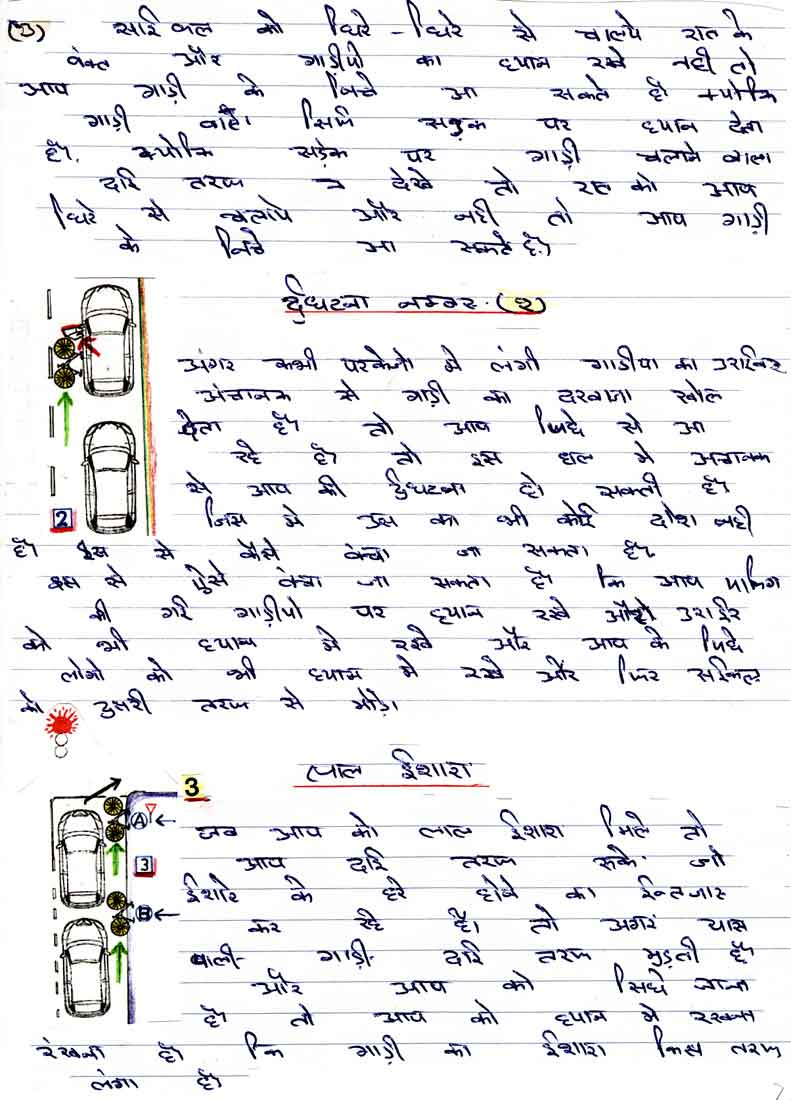 (3) साईकल को धिरे-धिरे से चालये रात के
वंक्त और गाडीयो का ध्यान रखे नही तो
आप गाडी के निचे आ सकते है। क्योकि
गाड़ी वाले सिर्फ सड़क पर ध्यान देता
है। क्योकि सड़क पर गाड़ी चलाने वाला
दाई तरफ न देखे तो रात को आप
धिरे से चलाये और नही तो आप गाड़ी
के निचे आ सकते है।
र्दुघटना नम्बर. (2)
अंगर कभी परकेन्गे मे लंगी गाडीया का डराईवर
अंचानक से गाड़ी का दरवाजा खोल
देता है। तो आप पिछे से आ
रहे है। तो इस हाल मे अचानक
से आप की र्दुघटना हो सक्ती है।
जिस मे उस का भी कोई दोश नही
है। इस से कैसे बंचा जा सकता है।
इस से ऐसे बंचा जा सकता है कि आप पार्किग
की गई गाड़ीयो पर ध्यान रखे और डराईवर
को भी ध्यान मे रखे और आप के पिछे
लोगो को भी ध्यान मे रखे और फिर सईकिल
को दुसरी तरफ से मोड़े।
2
लाल ईशारा
3
जब आप को लाल ईशारा मिले तो
आप दाई तरफ रुके जो
ईशारे के हरे होने का ईन्तजार
कर रहे है। तो अगर पास
वाली गाड़ी दाई तरफ मुड़ती है
और आप को सिधे जाना
है तो आप को ध्यान मे रखना
रंखना है। कि गाड़ी का ईशारा किस तरफ
लंगा है।
A
3
B